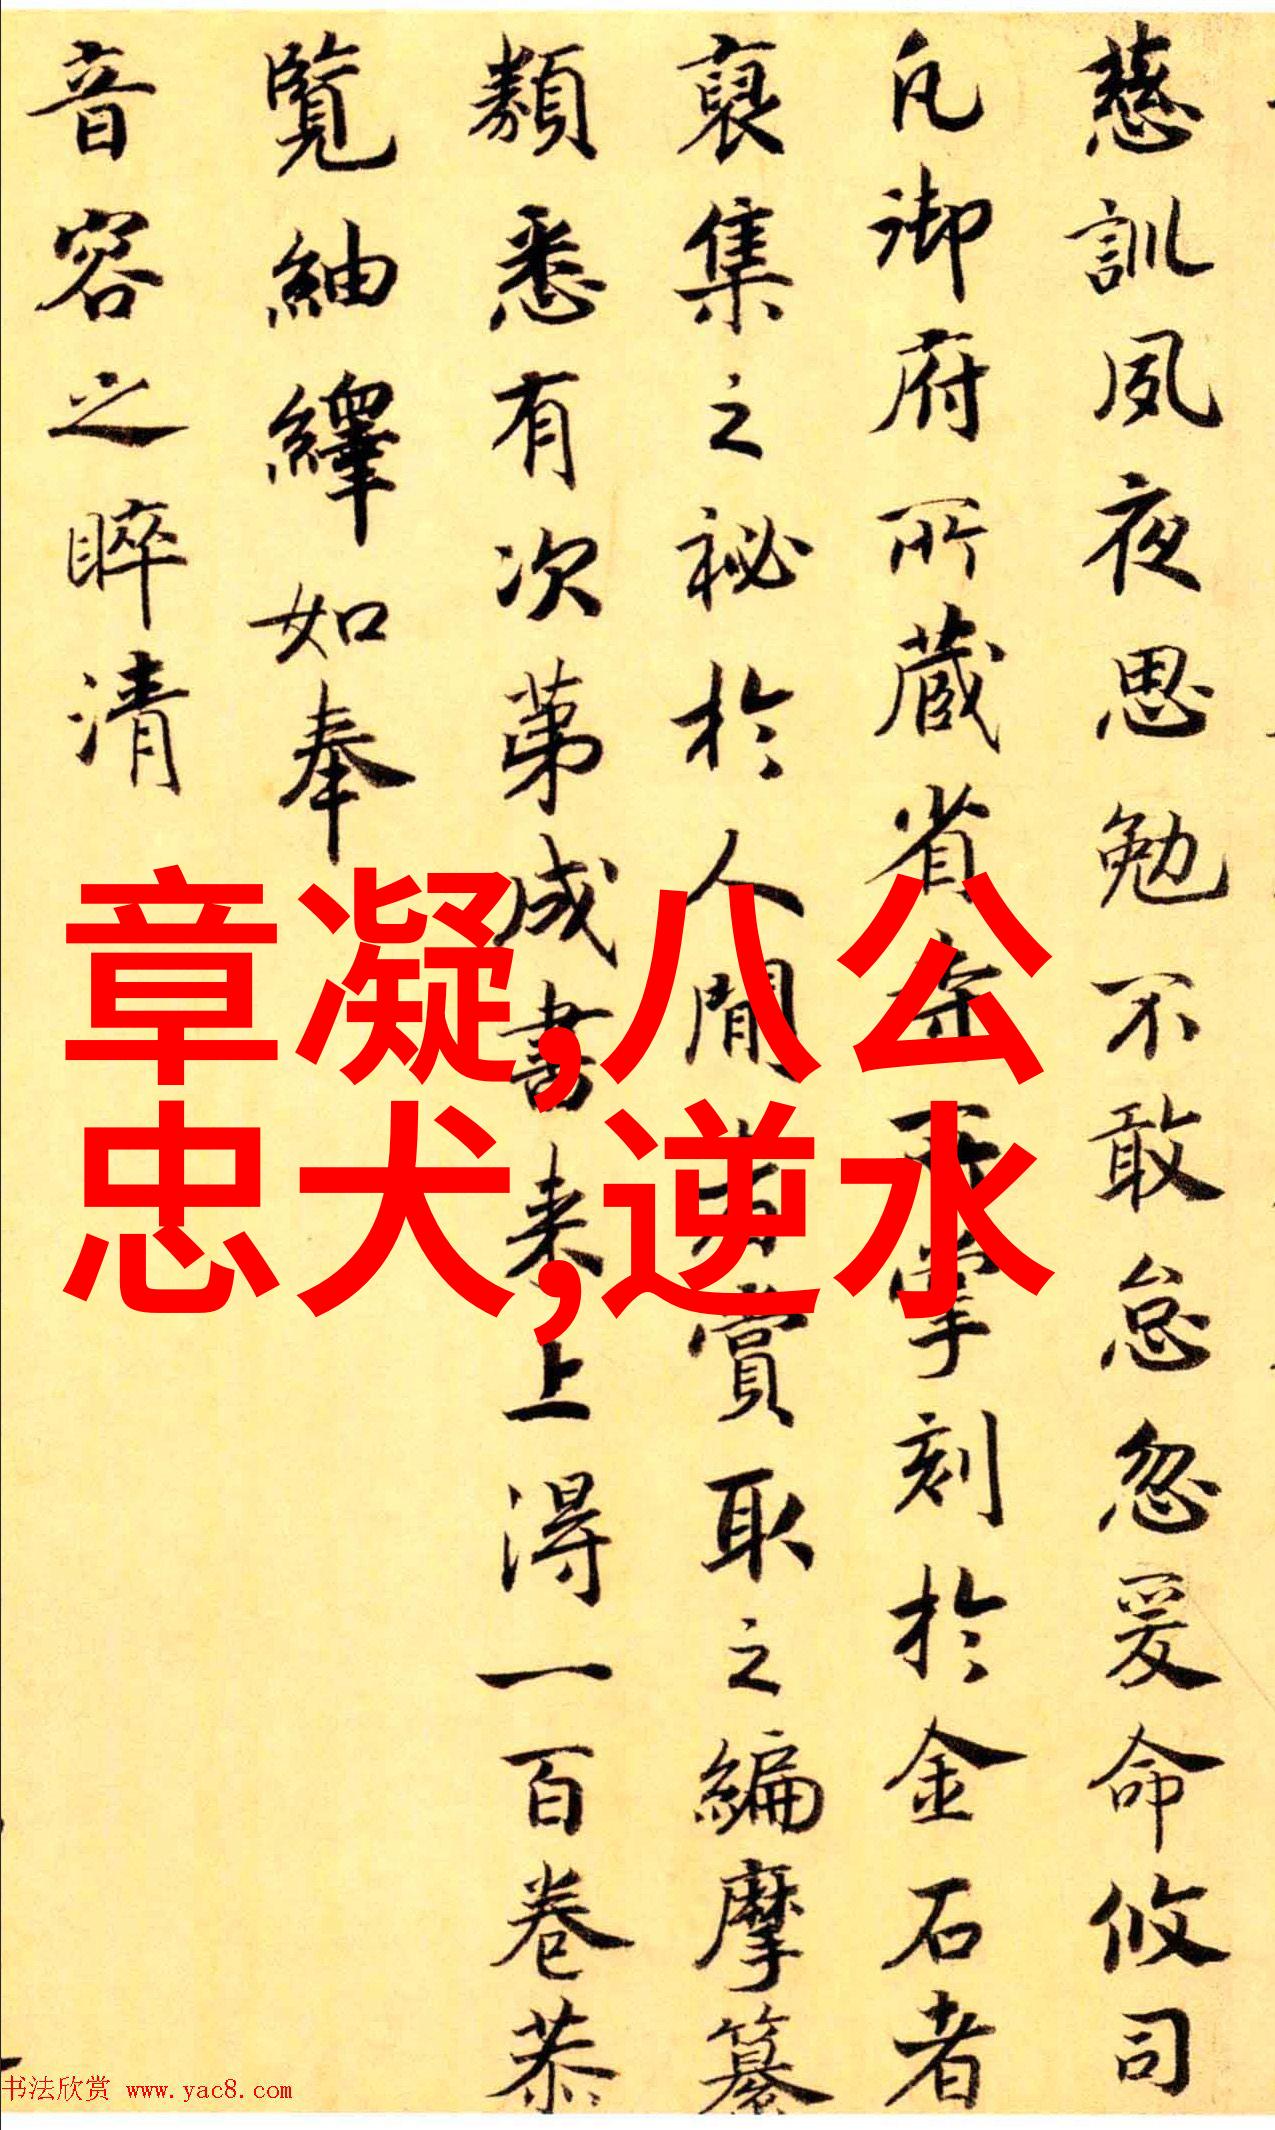 慈訓夙夜思勉不敢怠忽爰命攸司
凡御府所藏省寺所掌刻於金石者
裒集之秘於人間者賞取之編摩纂
類悉有次第成書来上得一百卷恭
覽紬繹如奉
音容之睟清
章凝,八公
忠犬,逆水
书法欣赏 www.yac8.com